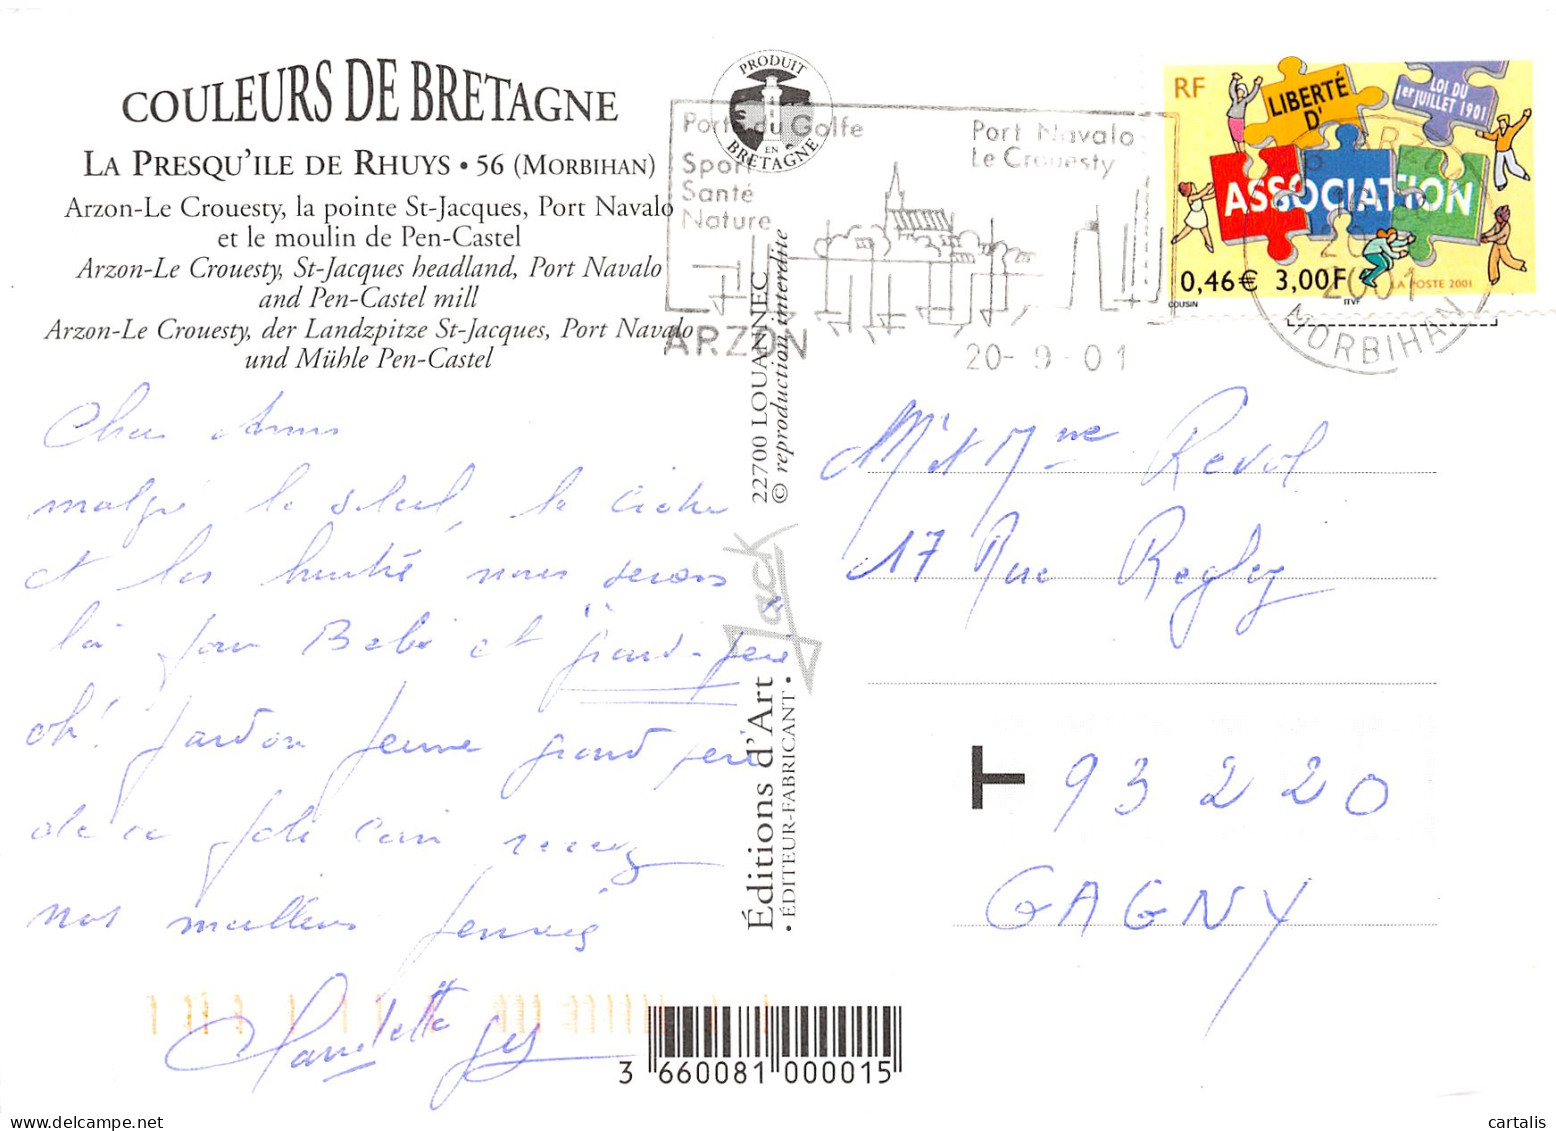 COULEURS DE BRETAGNE
LA PRESQU'ILE DE RHUYS • 56 (MORBIHAN)
Arzon-Le Crouesty, la pointe St-Jacques, Port Navalo
et le moulin de Pen-Castel
Arzon-Le Crouesty, St-Jacques headland, Port Navalo
and Pen-Castel mill
Arzon-Le Crouesty, der Landzpitze St-Jacques, Port Navalo
und Mühle Pen-Castel
PRODUIT
EN
BRETAGNE
Porte du Golfe
Sport
Santé
Nature
Port Navalo
Le Crouesty
ARZON
20-9-01
RF
LIBERTÉ
D'
LOI DU
1er JUILLET 1901
ASSOCIATION
0,46€ 3,00F
LA POSTE 2001
COUSIN
ITVF
MORBIHAN
2001
Chers Amis
malgré le soleil, le
et les nous serons
là pour Bébé et grand-père
oh! pardon jeune grand père
de ce joli coin recevez
nos meilleurs pensées
22700 LOUANNEC
© reproduction interdite
Jack
Éditions d'Art
• ÉDITEUR-FABRICANT •
Mr et Mme Revol
17 Rue Regley
T
93220
GAGNY
3 660081 000015
cartalis